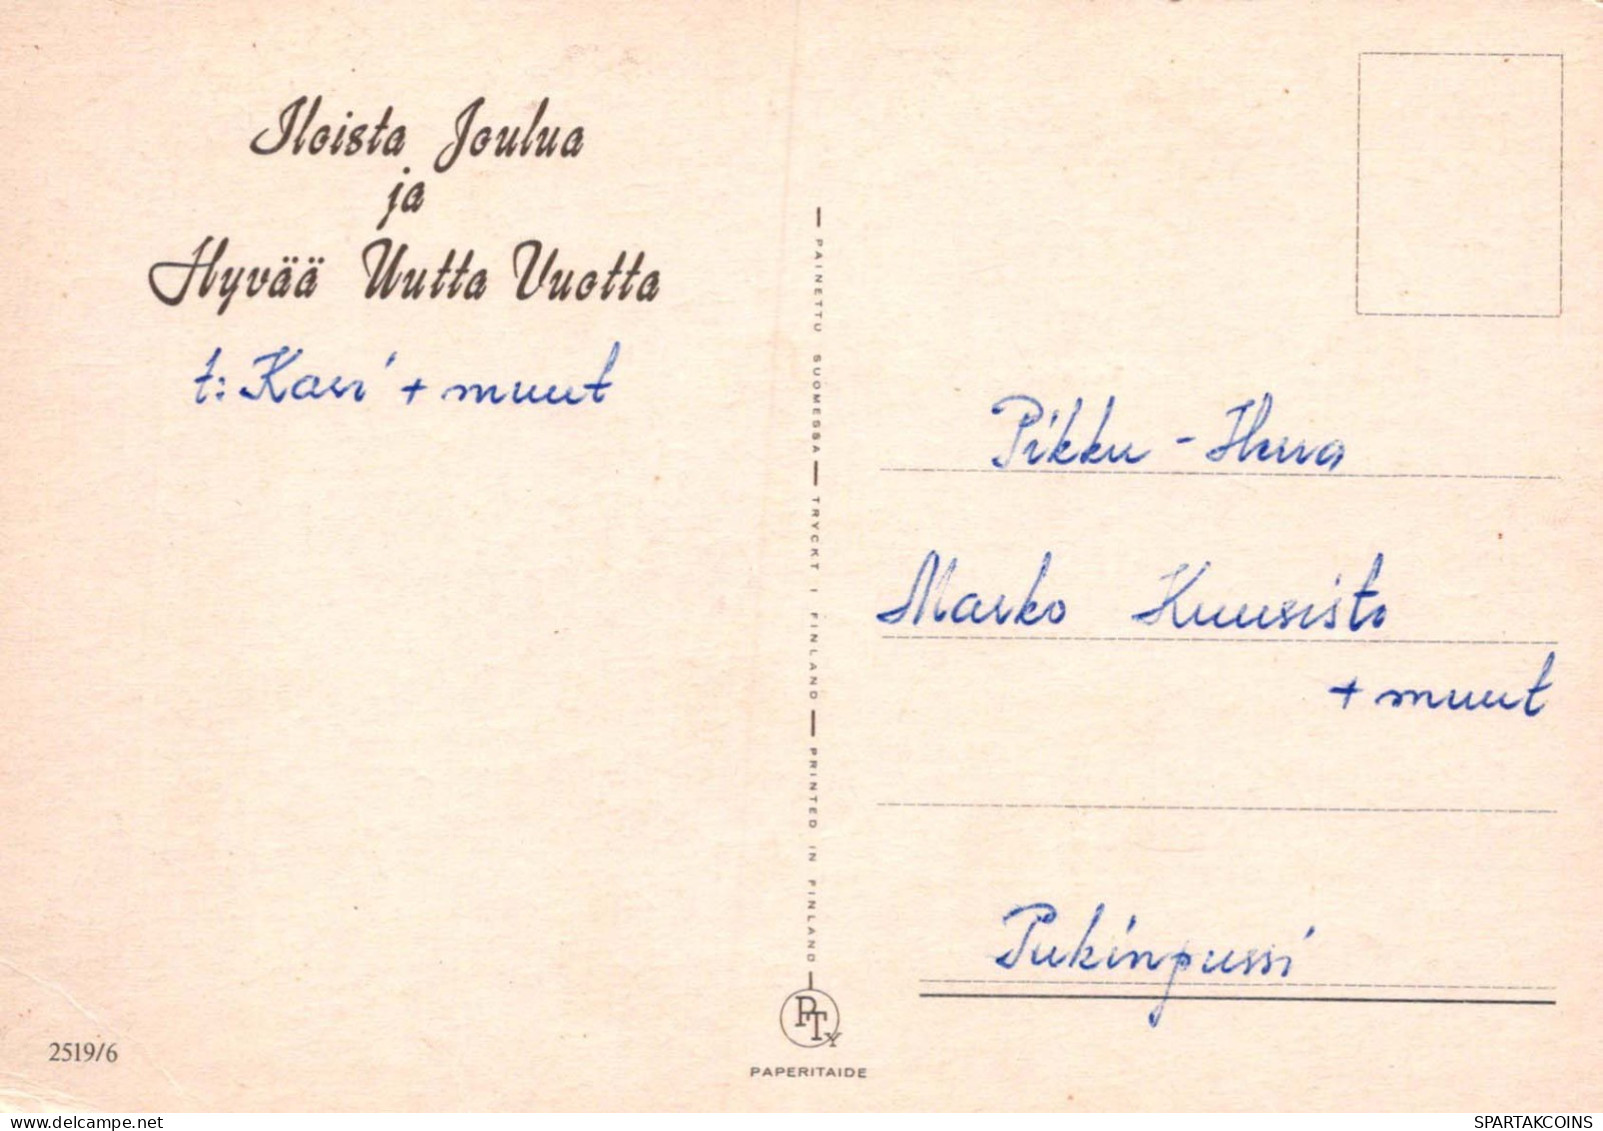 Iloista Joulua
ja
Hyvää Uutta Vuotta
t: Kari + muut
PAINETTU SUOMESSA — TRYCKT I FINLAND — PRINTED IN FINLAND
PTY
PAPERITAIDE
2519/6
Pikku - Herra
Marko Kuusisto
+ muut
Pukinpussi
www.delcampe.net
SPARTAKCOINS